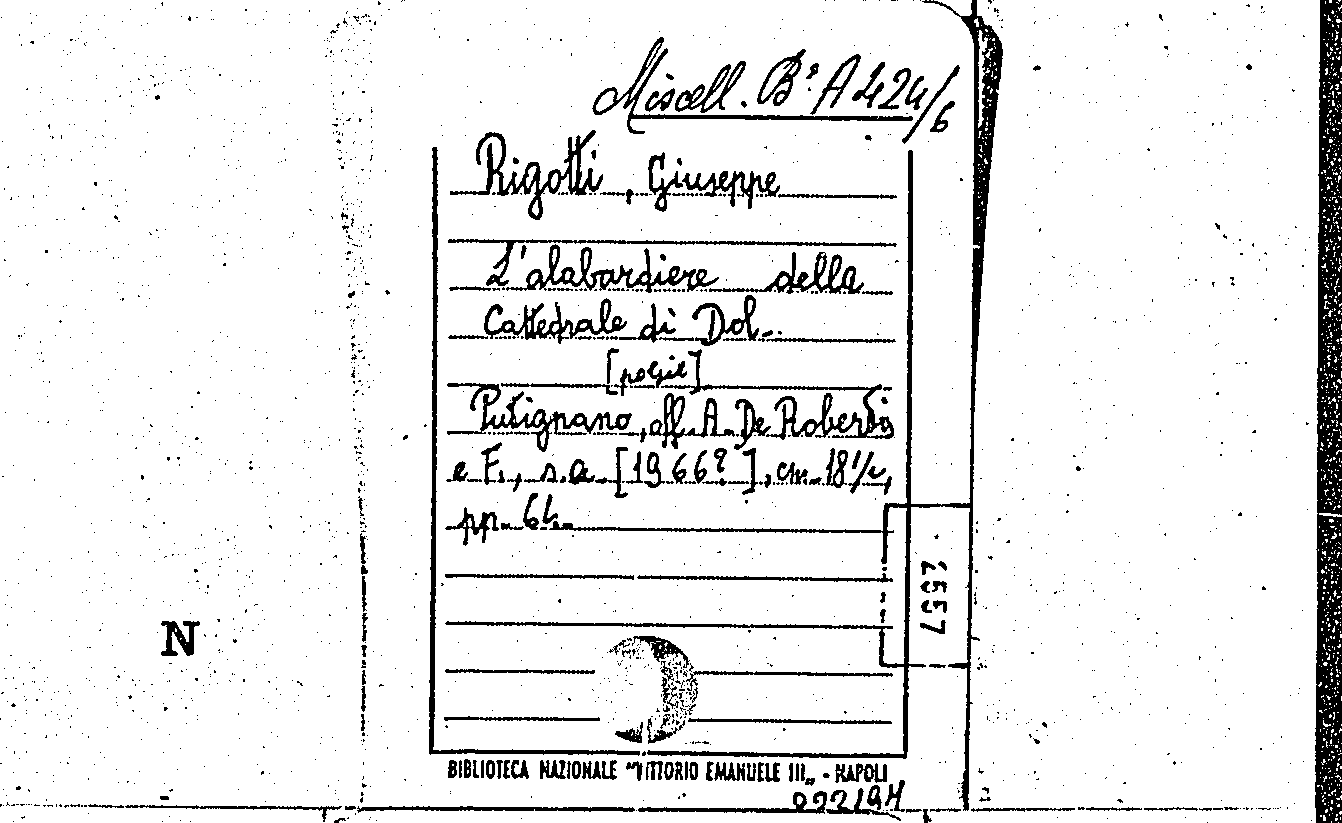 Miscell. Bª A 424/6
Rigotti, Giuseppe
L'alabardiere della
Cattedrale di Dol..
[poesie]
Putignano, off. A. De Robertis
e F., s.a. [1966?], cm. 18½,
pp. 64.
2557
N
BIBLIOTECA NAZIONALE "VITTORIO EMANUELE III„ - NAPOLI